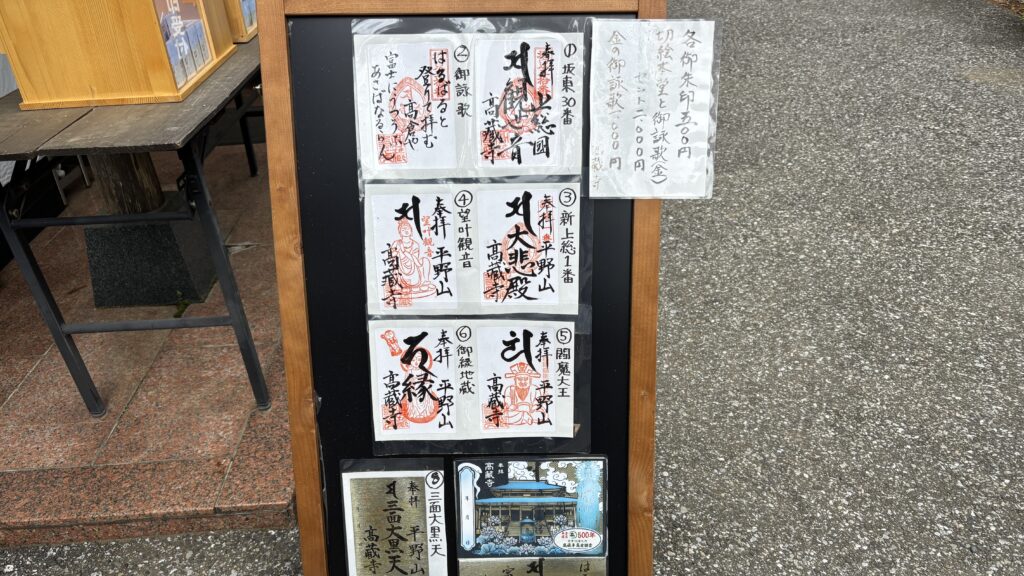 各御朱印五〇〇円
切絵本堂と御詠歌(金)
セット二〇〇〇円
金の御詠歌一〇〇〇円
高蔵寺
①坂東30番
奉拝
上総國
高蔵寺
②御詠歌
はるばると
登りて拝む
高倉や
富士にうつろう
あさばなるらん
③新上総1番
奉拝 平野山
大悲殿
高蔵寺
④望叶観音
奉拝 平野山
望叶観音
高蔵寺
⑤閻魔大王
奉拝 平野山
高蔵寺
⑥御縁地蔵
奉拝 平野山
縁
高蔵寺
⑧三面大黒天
奉拝 平野山
三面大黒天
高蔵寺
高蔵寺
500年